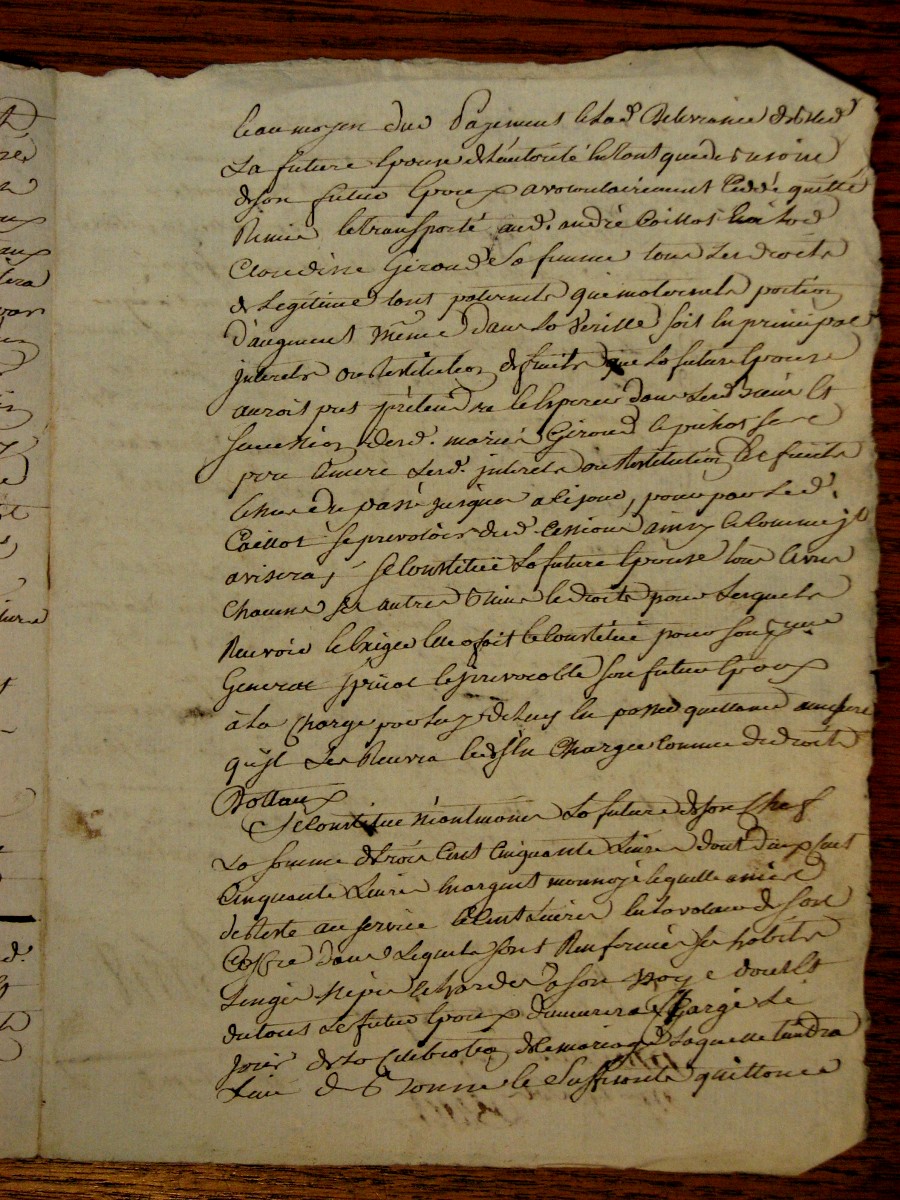 et au moyen dud. Payement et lad. Delivrance
La future Epouse de l'autorité en tant que de
de son futur Epoux a volontairement Cedé quitté
Remis et transporté aud. andré Caillot et a lad.
Claudine Giroud sa femme tous Les droits
de Legitime tant paternels que maternels portion
d'augment même dans La Verille soit en principal
interets ou restitution de fruits que La future Epouse
auroit peu prétendre et Esperer dans Led. et
succession desd. mariés Giroud et
pere et mere Lesd. interets ou Restitution de fruits
du passé jusques a ce jour, pour par Led.
Caillot se prevaloir dud. Cession ainsy et comme jl
avisera, se Constitue La future Epouse tous et uns
Chacuns ses autres Biens et droits pour Lesquels
Recevoir et Exiger Elle a fait et Constitué pour son
General special et jrrevocable son futur Epoux
à La Charge par Luy de Luy En passer quittance a mesure
qu'jl Les Recevra et d'En Charger comme de droit
Dottaux
Se Constitue Néantmoins La future de son Chef
La somme de trois Cent Cinquante Livres dont deux Cent
Cinquante Livres En argent monnoyé
au service et Cent Livres En La valeur de son
Coffre dans Lequel sont Renfermés ses habits
Linges Nipes et hardes a son Usage dont et
du tout Le futur Epoux demeurera Chargé Le
jour de La Celebration de Ce mariage Laquelle tiendra
Lieu de Bonne et Suffisante quittance